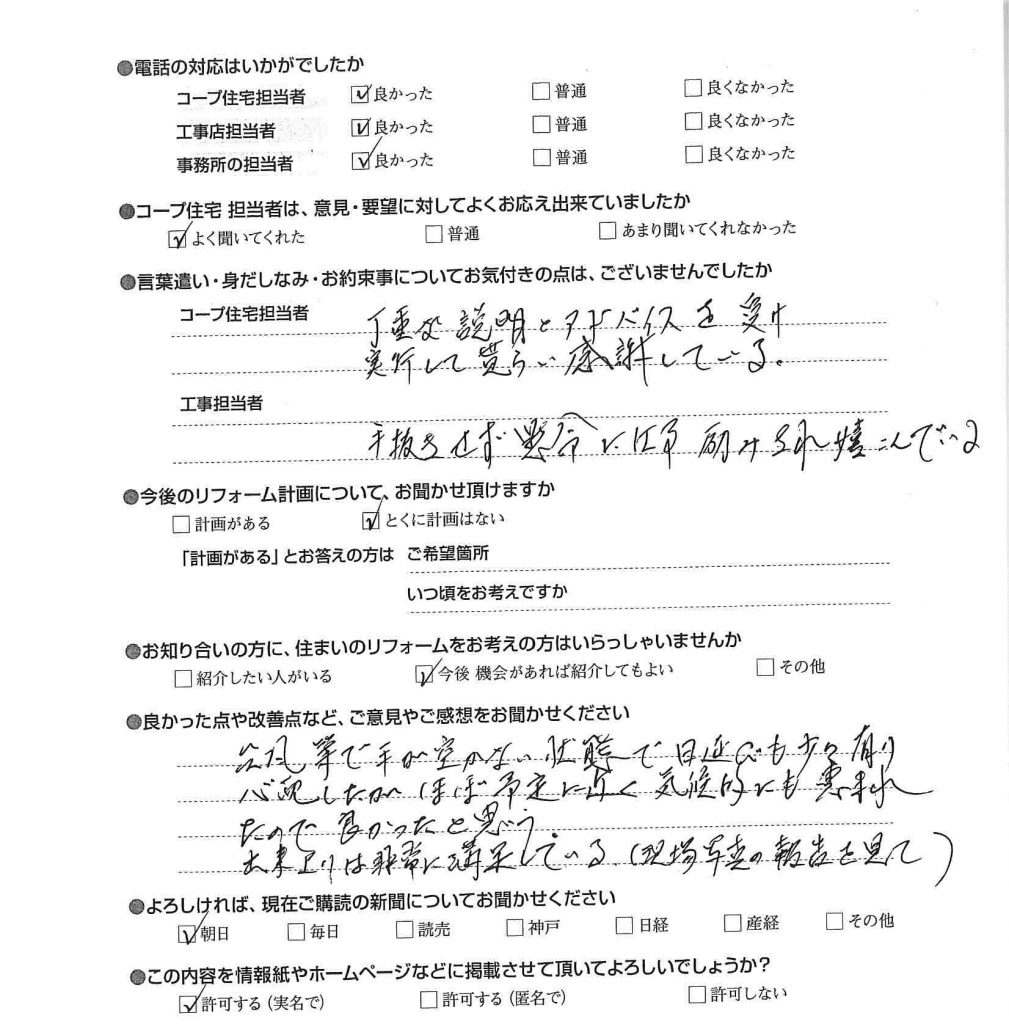 ●電話の対応はいかがでしたか
コープ住宅担当者 ☑良かった □普通 □良くなかった
工事店担当者 ☑良かった □普通 □良くなかった
事務所の担当者 ☑良かった □普通 □良くなかった
●コープ住宅 担当者は、意見・要望に対してよくお応え出来ていましたか
☑よく聞いてくれた □普通 □あまり聞いてくれなかった
●言葉遣い・身だしなみ・お約束事についてお気付きの点は、ございませんでしたか
コープ住宅担当者 丁重な説明とアドバイスを受け
実行して貰らい感謝している。
工事担当者
手抜きせず懸命に仕事励みされ嬉こんでいる
●今後のリフォーム計画について、お聞かせ頂けますか
□計画がある ☑とくに計画はない
「計画がある」とお答えの方は ご希望箇所
いつ頃をお考えですか
●お知り合いの方に、住まいのリフォームをお考えの方はいらっしゃいませんか
□紹介したい人がいる ☑今後 機会があれば紹介してもよい □その他
●良かった点や改善点など、ご意見やご感想をお聞かせください
台風等で手が空かない状態で日延びも少々有り
心配したがほぼ予定に近く気候的にも恵まれ
たので良かったと思う。
出来上りは非常に満足している(現場写真の報告を見て)
●よろしければ、現在ご購読の新聞についてお聞かせください
☑朝日 □毎日 □読売 □神戸 □日経 □産経 □その他
●この内容を情報紙やホームページなどに掲載させて頂いてよろしいでしょうか？
☑許可する(実名で) □許可する(匿名で) □許可しない